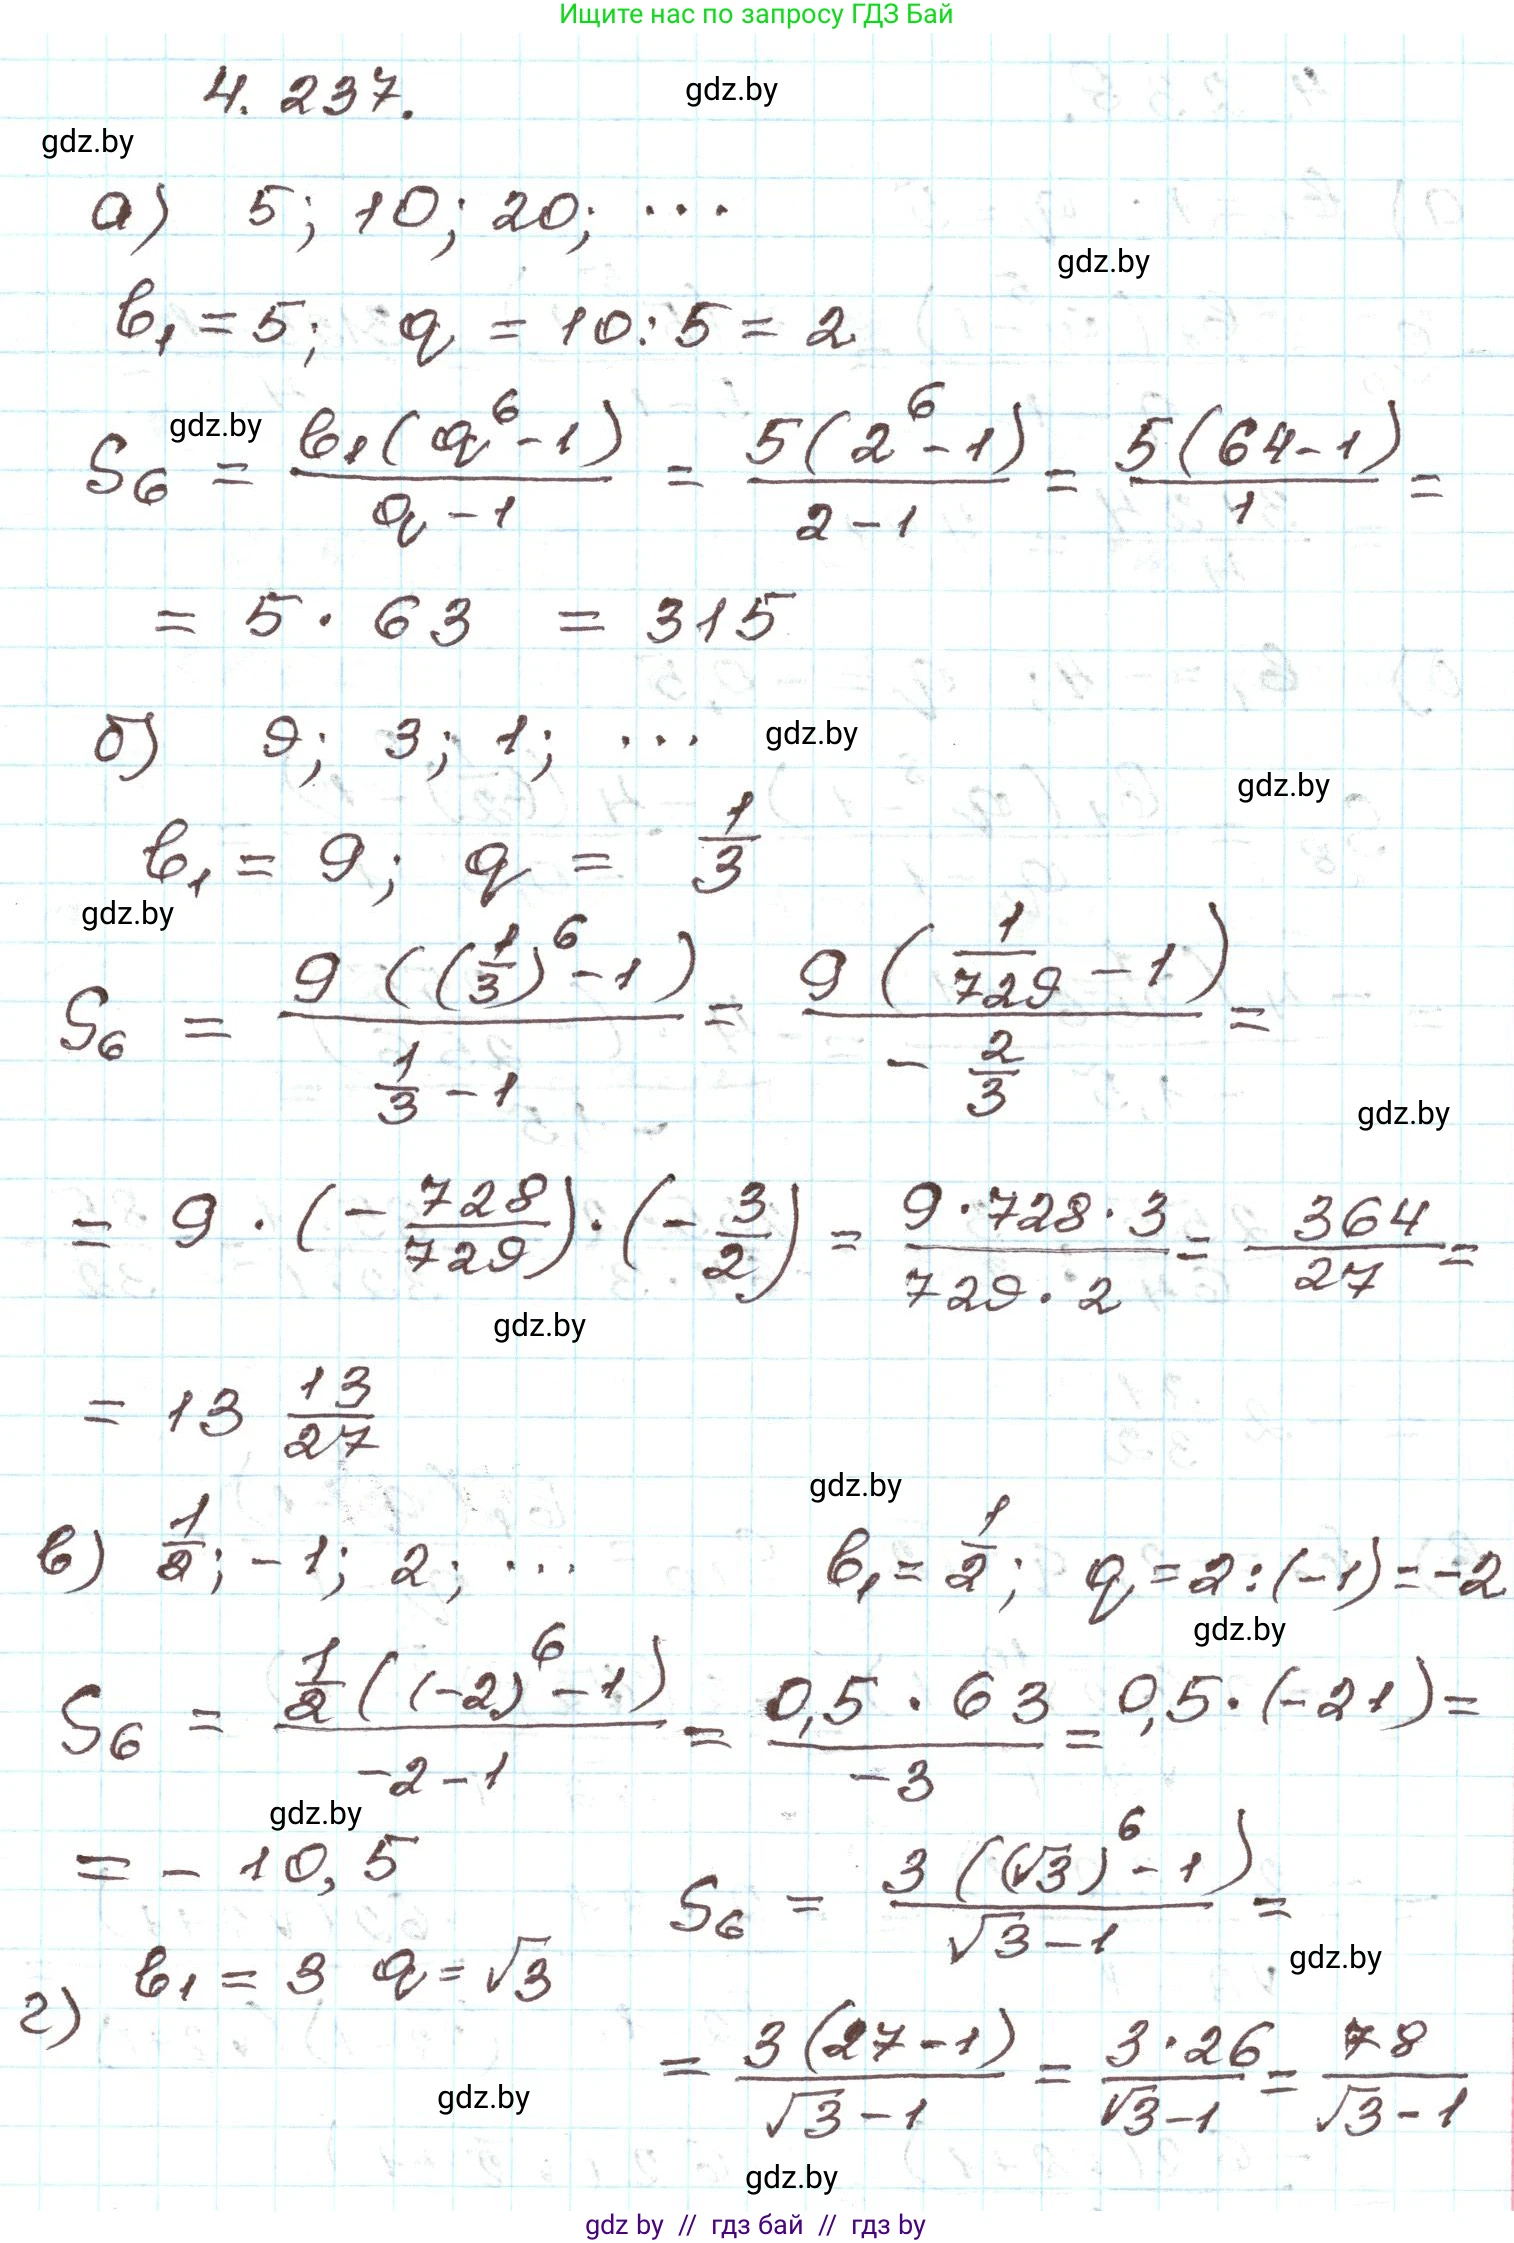 Ищите нас по запросу ГДЗ Бай
4. 237.
gdz.by
gdz.by
а) 5; 10; 20; ...
gdz.by
b₁ = 5; q = 10 : 5 = 2
gdz.by
S₆ = b₁(q⁶ - 1) / (q - 1) = 5(2⁶ - 1) / (2 - 1) = 5(64 - 1) / 1 =
= 5 · 63 = 315
б) 9; 3; 1; ...
gdz.by
gdz.by
b₁ = 9; q = 1/3
gdz.by
S₆ = 9((1/3)⁶ - 1) / (1/3 - 1) = 9(1/729 - 1) / (-2/3) =
gdz.by
= 9 · (-728/729) · (-3/2) = 9·728·3 / 729·2 = 364/27 =
gdz.by
= 13 13/27
gdz.by
в) 1/2; -1; 2; ... b₁ = 1/2; q = 2 : (-1) = -2
gdz.by
S₆ = 1/2((-2)⁶ - 1) / (-2 - 1) = 0,5 · 63 / -3 = 0,5 · (-21) =
gdz.by
= - 10,5
г) b₁ = 3 q = √3
S₆ = 3((√3)⁶ - 1) / (√3 - 1) =
gdz.by
= 3(27 - 1) / (√3 - 1) = 3·26 / (√3 - 1) = 78 / (√3 - 1)
gdz.by
gdz.by
gdz by // гдз бай // гдз by